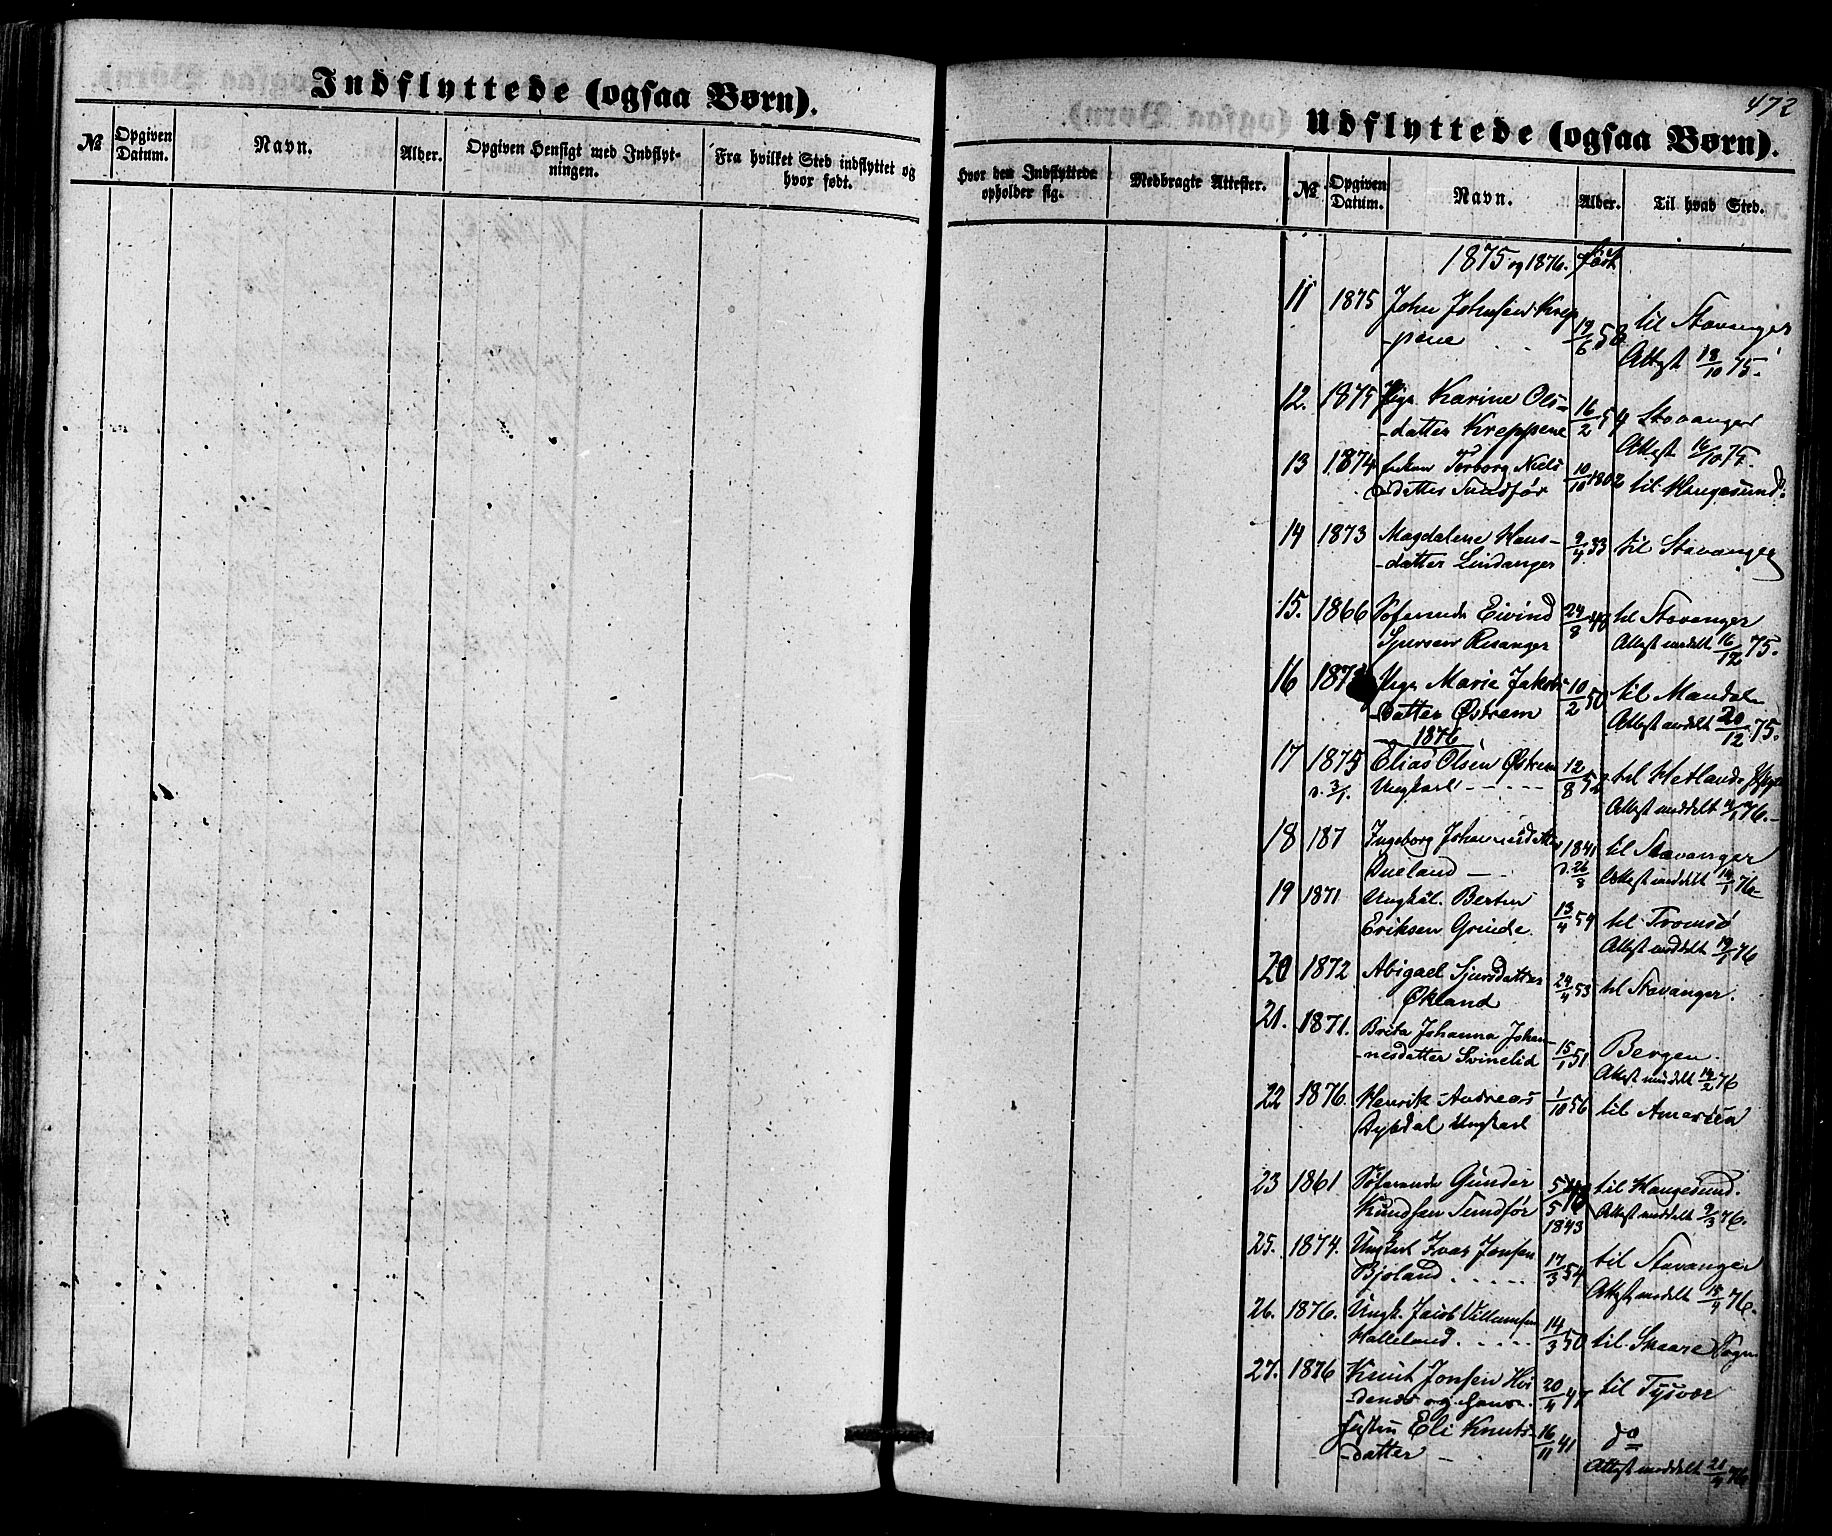 Indflyttede (ogsaa Børn).
№ Opgiven Datum. Navn. Alder. Opgiven Hensigt med Indflytningen. Fra hvilket Sted indflyttet og hvor født.
472
Udflyttede (ogsaa Børn).
Hvor den Indflyttede opholder sig. Medbragte Attester. № Opgiven Datum. Navn. Alder. Til hvad Sted.
1875 og 1876. født
11 1875 John Johnsen Krep- 19/6 58 til Stavanger
-pene Attest 18/10 75.
12. 1875 Pige Karine Ols- 16/2 54 Stavanger
-datter Kreppene Attest 16/10 75.
13 1874 Enken Torborg Niels 10/10 1802 til Haugesund.
-datter Sundfør
14 1873 Magdalene Hans- 9/4 33 til Stavanger
-datter Lindanger
15. 1866 Søfarende Eivind 24/8 40 til Stavanger
Sjursen Risanger Attest meddelt 16/12 75.
16 187 Pige Marie Jakobs 10/2 50 til Mandal
-datter Østrem Attest meddelt 20/12 75.
1876
17 1875 Elias Olsen Østrem 12/8 5 til Hetland
d. 3/1. Ungkarl - - - - - Attest meddelt 76.-
18 187 Ingeborg Johannesdatter 1841 til Stavanger
Dueland - . d. 26/8 Attest meddelt 14/1 76
19 1871 Ungkal. Bertin 13/4 54 til Tromsø
Eriksen Grinde. Attest meddelt 19/1 76
20 1872 Abigael Sjursdatter 24/4 53 til Stavanger.
Økland
21. 1871. Brita Johanna Johan- 15/1 51 Bergen.
-nesdatter Svinelid Attest meddelt 14/2 76
22 1876. Henrik Andreas 1/10 56 til Amerika
Ungkarl
23 1861 Søfarende Gunder til Haugesund.
Knudsen Sundfør 1843 Attest meddelt 9/3 76.
25. 1874. Ungkarl Ivar Jonsen 17/3 54 til Stavanger
Bjoland . . . . . Attest meddelt 18/4 76.
26. 1876. Ungk. Jacob Villumsen 14/3 50 til Skaare Sogn
Halleland . . . . .
27. 1876 Knut Jonsen Hvi 20/4 47 til Tysvær
-dende og hans
Hustru Eli Knuts- 16/11 41 do
-datter - Attest meddelt 21/4 76